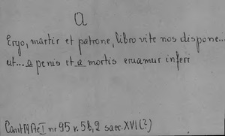 a
Ergo, martir et patrone, libro vite nos dispone...
ut... a penis et a mortis eruamur inferi
Cant MAE I nr 95 k. 58,2 saec. XVI (?)